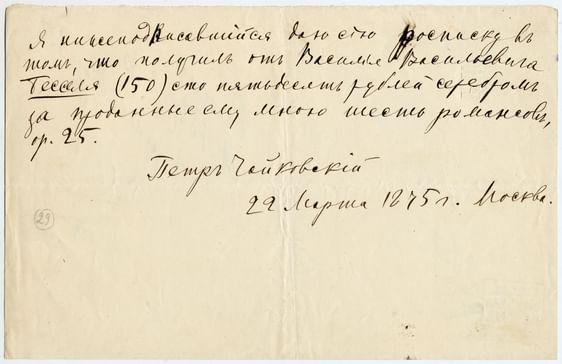 Я нижеподписавшійся даю сію росписку въ
томъ, что получилъ отъ Василья Васильевича
Бесселя (150) сто пятьдесятъ рублей серебромъ
за проданные ему мною шесть романсовъ,
op. 25.
Петръ Чайковскій
29 Марта 1875 г. Москва.
29